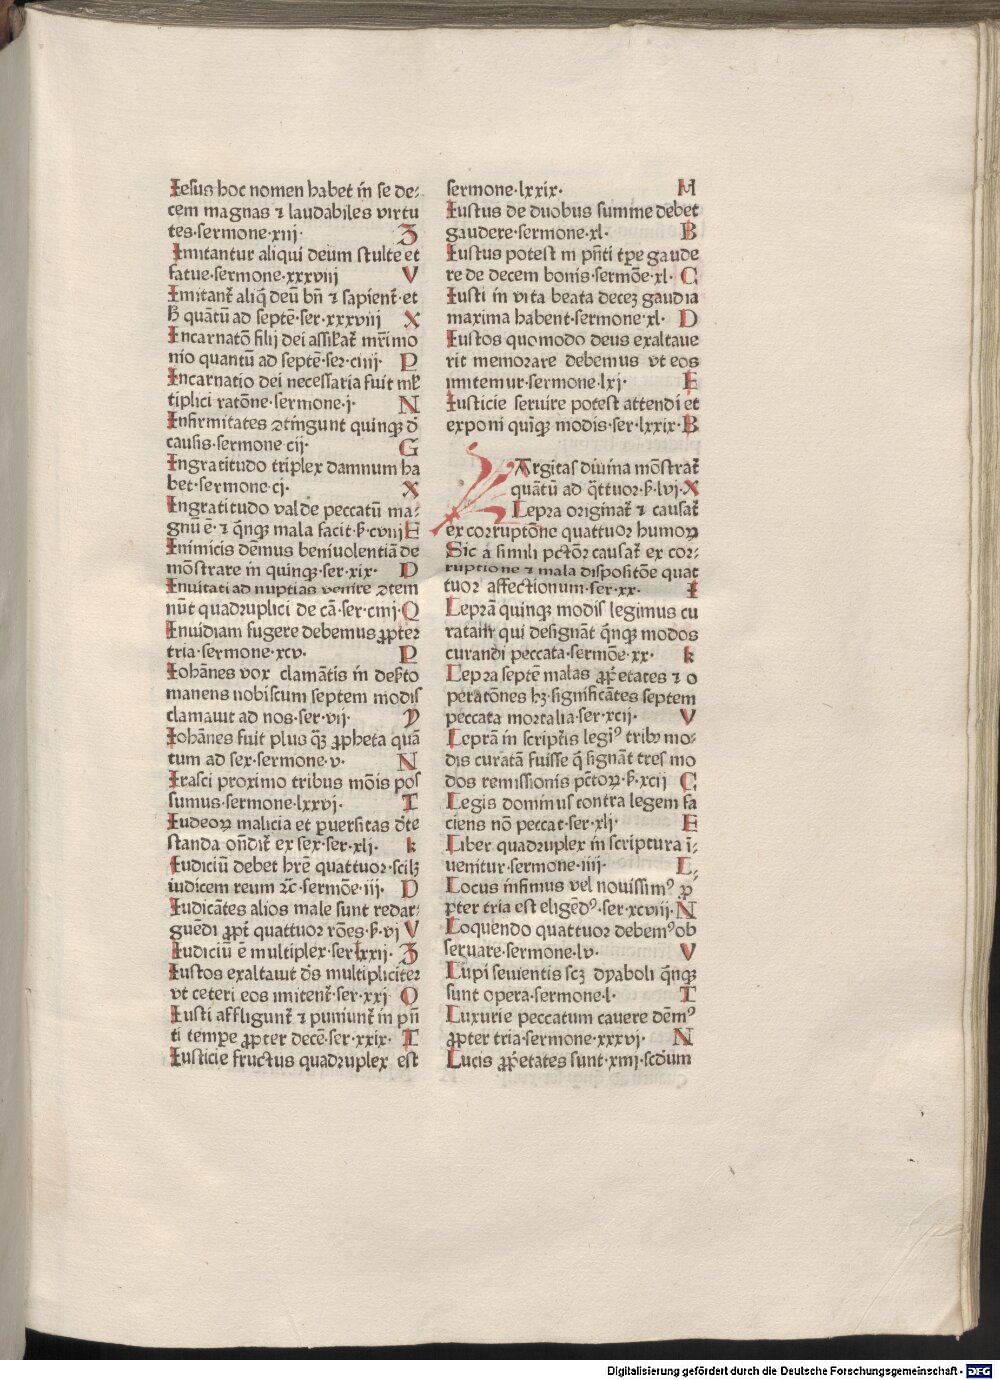 Iesus hoc nomen habet in se de⸗
cem magnas ⁊ laudabiles virtu
tes·sermone·xiij· Z
Imitantur aliqui deum stulte et
fatue·sermone·xxxviij V
Imitant᷑ aliq̄ deū bn̄ ⁊ sapient᷑·et
quātū ad septē·ser·xxxviij X
Incarnatō filij dei assīlat᷑ mr̄imo
nio quantū ad septē·ser·ciiij· P
Incarnatio dei necessaria fuit ml̄
tiplici ratōne·sermone·j· N
Infirmitates ꝯtīngunt quinqꝫ d̄
causis·sermone cij· G
Ingratitudo triplex damnum ha
bet·sermone·cj· X
Ingratitudo valde peccatū ma⸗
gnū ē·⁊ q̄nqꝫ mala facit·ẞ·cviij E
Inimicis dēmus beniuolentiā de
mōstrare in quinqꝫ·ser·xix· D
Inuitati ad nuptias venire ꝯtem
nūt quadruplici de cā·ser·cxiij·Q
Inuidiam fugere debemus ꝓpter
tria·sermone·xcv· P
Iohānes vox clamātis in deẞto
manens uobiscum septem modis
clamauit ad nos·ser·vij· Y
Iohānes fuit plus q̄ꝫ ꝓpheta quā
tum ad sex·sermone·v· N
Irasci proximo tribus mōis pos
sumus·sermone·lxxvj· T
Iudeoꝝ malicia et ꝑuersitas d̄te
standa on̄dit᷑ ex sex·ser·xlj· k
Iudiciū debet hr̄e quattuor·scilꝫ
iudicem reum ⁊c̄·sermōe·iij· D
Iudicātes alios male sunt redar⸗
guēdi ꝓpt᷑ quattuor rōes·ẞ·vj V
Iudiciū ē multiplex·ser·lxxij· Z
Iustos exaltauit dn̄s multipliciter
vt ceteri eos imitent᷑·ser·xxj O
Iusti affligunt᷑ ⁊ puniunt᷑ in pn̄
ti tempe ꝓpter decē·ser·xxix· T
Iusticie fructus quadruplex est
sermone·lxxix· M
Iustus de duobus summe debet
gaudere·sermone·xl· B
Iustus potest in pn̄ti tp̄e gaude
re de decem bonis·sermōe·xl· C
Iusti in vita beata deceꝫ gaudia
maxima habent·sermone·xl· D
Iustos quomodo deus exaltaue
rit memorare debemus vt eos
imitemur·sermone·lxj· E
Iusticie seruire potest attendi et
exponi quīqꝫ modis·ser·lxxix·B
LArgitas diuina mōstrat᷑
quātū ad q̄ttuor·ẞ·lvj·X
Lepra originat᷑ ⁊ causat᷑
ex corruptōne quattuor humoꝝ
Sic a simili pctōꝝ causat᷑ ex cor⸗
ruptione ⁊ mala dispositōe quat
tuor affectionum·ser·xx· I
Leprā quinqꝫ modis legimus cu
ratam qui designāt q̄nqꝫ modos
curandi peccata·sermōe·xx· k
Lepra septē malas ꝓpetates ⁊ o
peratōnes hꝫ·significātes septem
peccata mortalia·ser·xcij· V
Leprā in scriptꝭs legi⁹ tribꝫ mo⸗
dis curatā fuisse q̄ signāt tres mo
dos remissionis pctōꝝ·ẞ·xcij C
Legis dominus contra legem fa
ciens nō peccat·ser·xlj· E
Liber quadruplex in scriptura ī⸗
uenitur·sermone·iiij· L
Locus infimus vel nouissim⁹ ꝓ⸗
pter tria est eligēd⁹·ser·xcviij·N
Loquendo quattuor debem⁹ob
seruare·sermone·lv· V
Lupi seuientis scꝫ dyaboli q̄nqꝫ
sunt opera·sermone·l· T
Luxurie peccatum cauere dēm⁹
ꝓpter tria·sermone·xxxvj· N
Lucis ꝓpetates sunt·xiiij·scd̄um
Digitalisierung gefördert durch die Deutsche Forschungsgemeinschaft - DFG